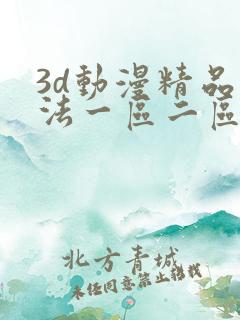 3d動漫精品
法一區二區
北方青城
未经同意禁止转载